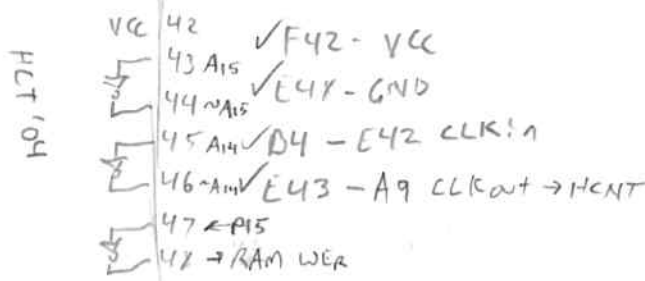 HCT '04
VCC 42 ✓F42 - VCC
43 A15 ✓E48 - GND
44 ~A15
45 A14 ✓D4 - E42 CLKin
46 ~A14 ✓E43 - A9 CLKout → HCNT
47 ← P15
48 → RAM WER